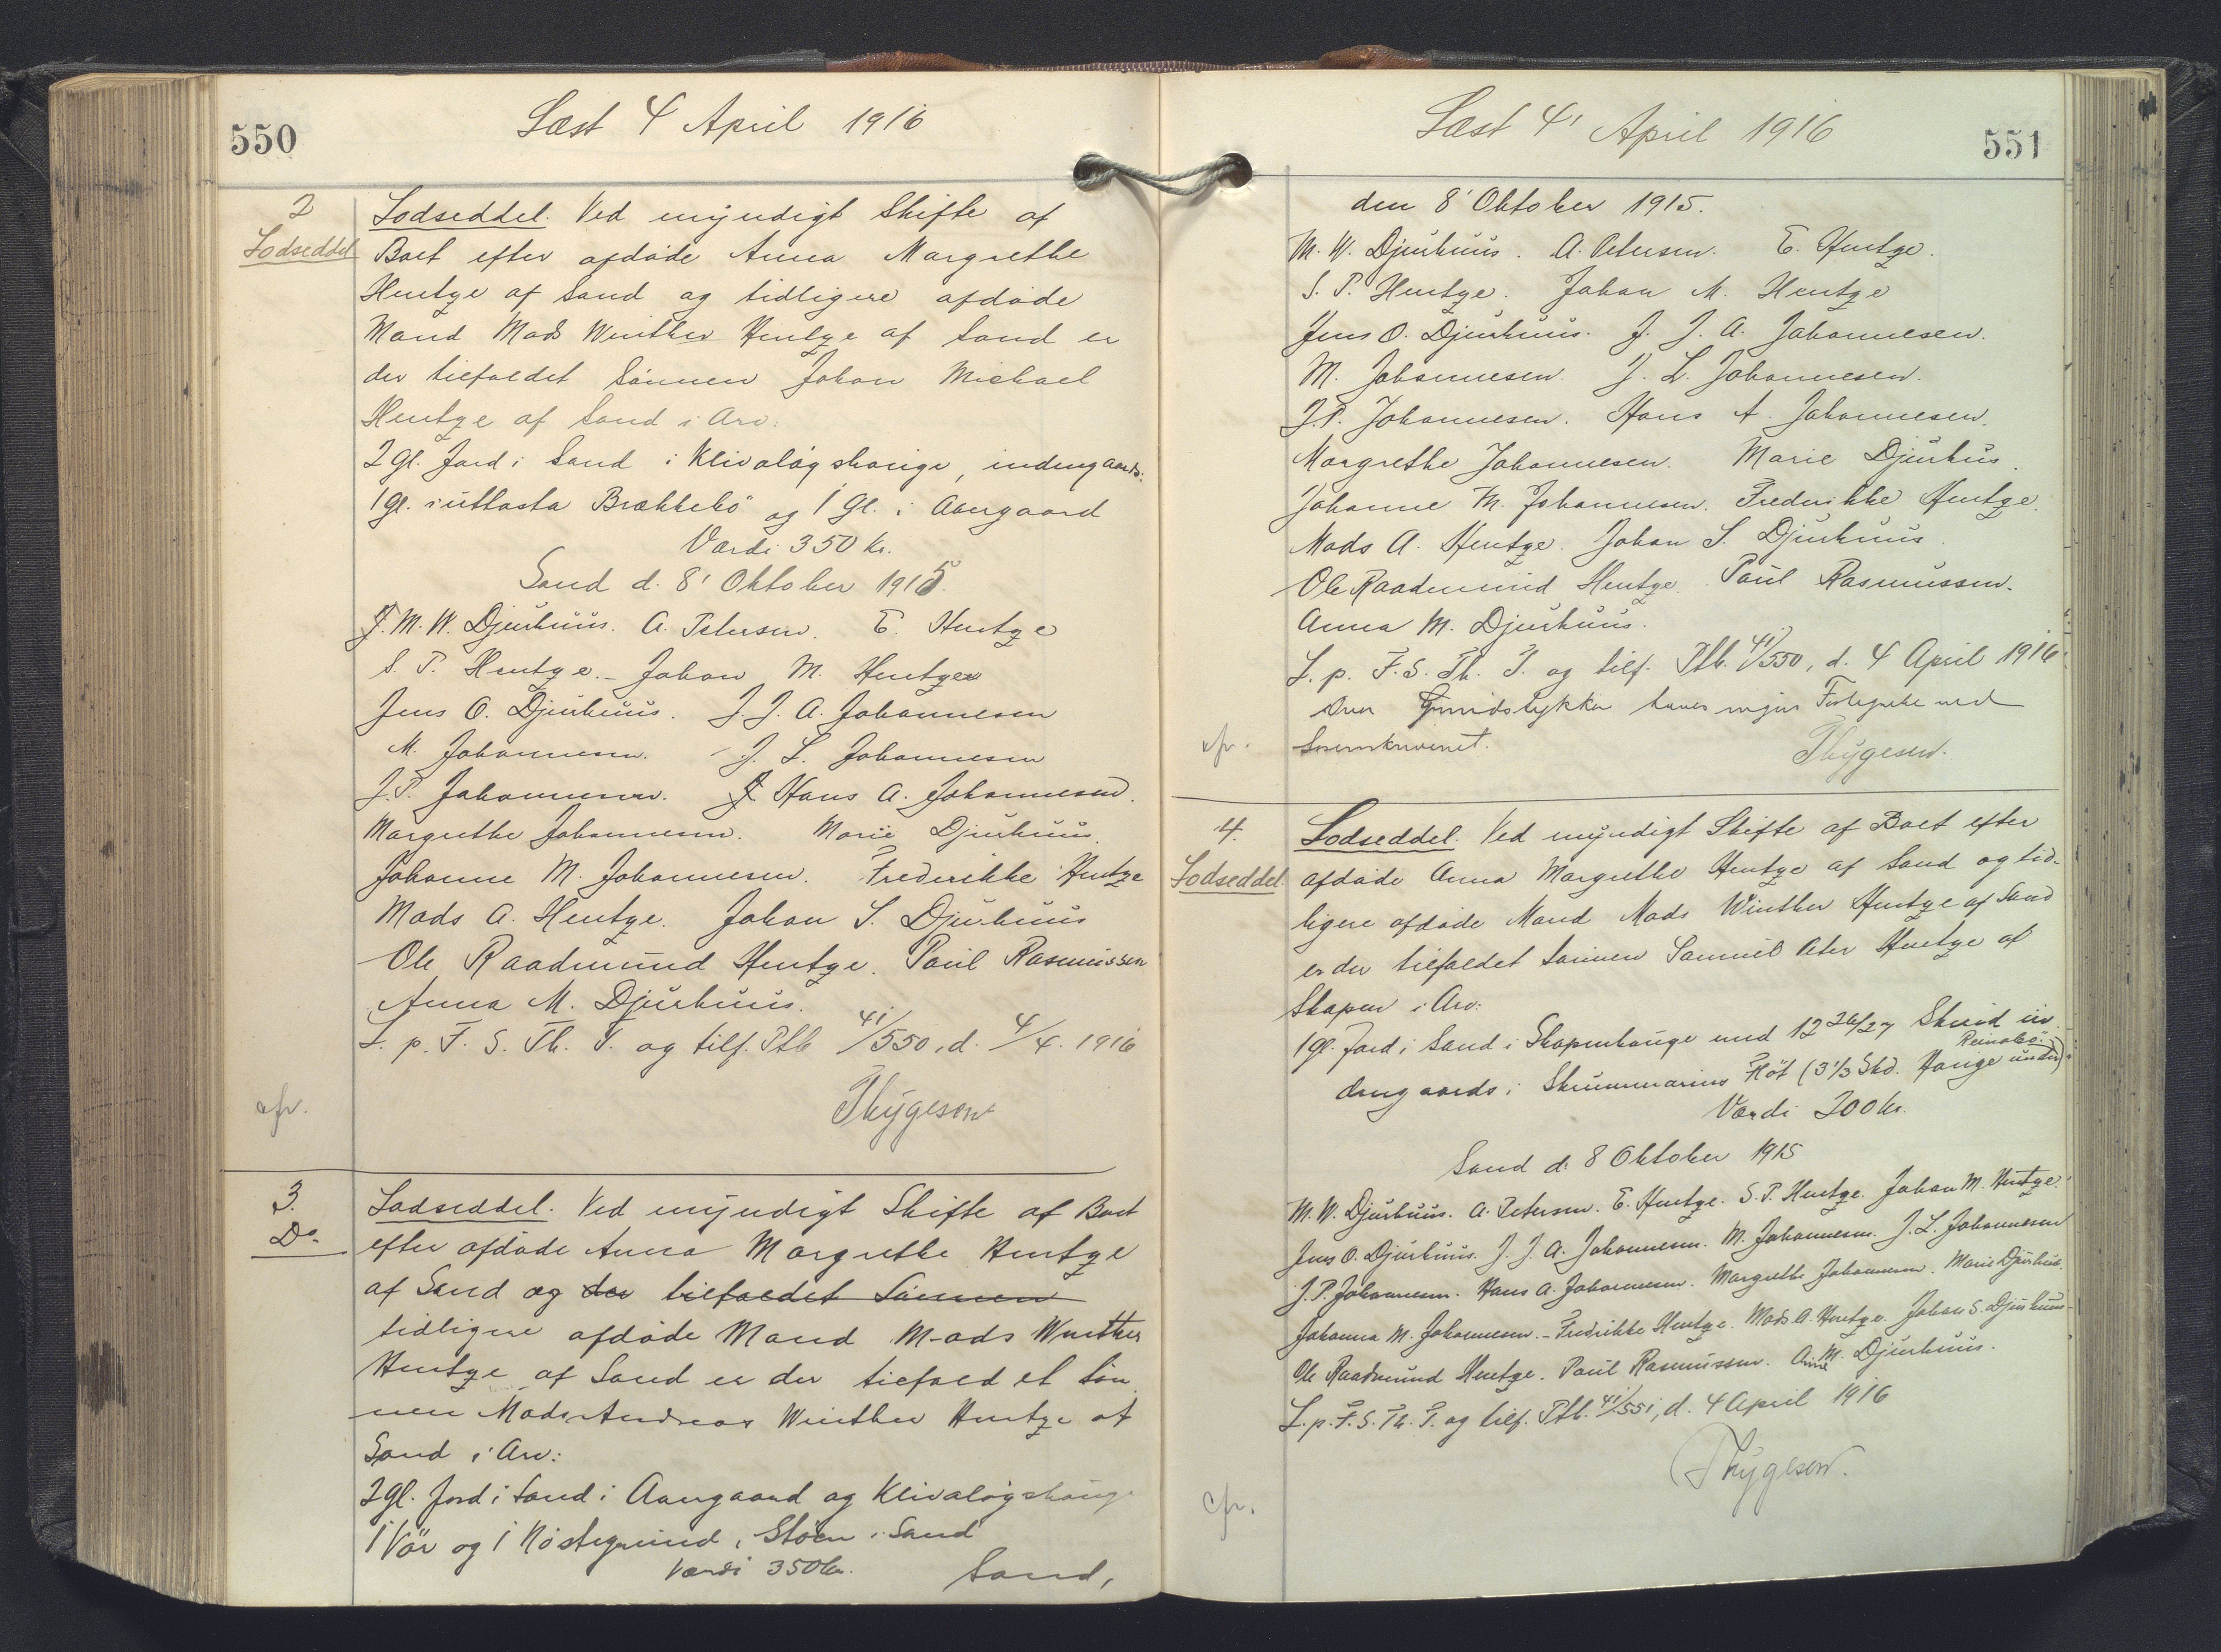 550
Læst 4 April 1916
2
Lodseddel
Lodseddel. Ved myndigt Skifte af
Boet efter afdøde Anna Margrethe
Hentze af Sand og tidligere afdøde
Mand Mads Winther Hentze af Sand er
der tilfaldet Sønnen Johan Michael
Hentze af Sand i Arv:
2 Gl. Jord i Sand i Klivaløgshauge, indengaards.
1 Gl. i uttasta Brækkebø og 1 Gl. i Aargaard
Værdi 350 Kr.
Sand d. 8' Oktober 1915.
J. M. W. Djurhuus. A. Petersen. E. Hentze
S. P. Hentze. - Johan M. Hentze
Jens O. Djurhuus. J. J. A. Johannesen
M. Johannesen. J. L. Johannesen
J. P. Johannesen. Hans A. Johannesen.
Margrethe Johannesen. Marie Djurhuus.
Johanne M. Johannesen. Frederikke Hentze
Mads A. Hentze. Johan S. Djurhuus
Ole Raadmund Hentze. Poul Rasmussen
Anna M. Djurhuus.
L. p. F. S. Th. T. og tilf. Ptb 41/550, d. 4/4. 1916
cfr.
Thygesen
3.
Do.
Lodseddel. Ved myndigt Skifte af Boet
efter afdøde Anna Margrethe Hentze
af Sand og der tilfaldet Sønnen
tidligere afdøde Mand Mads Winther
Hentze af Sand er der tilfaldet Søn
nen Mads Andreas Winther Hentze af
Sand i Arv:
2 Gl. Jord i Sand i Aargaard og Klivaløgshauge
1 Vør og 1 Nøstegrund, Støen i Sand
Værdi 350 Kr.
Sand,
551
Læst 4' April 1916
den 8' Oktober 1915.
M. W. Djurhuus. A. Petersen. E. Hentze.
S. P. Hentze. Johan M. Hentze
Jens O. Djurhuus. J. J. A. Johannesen.
M. Johannesen. J. L. Johannesen.
J. P. Johannesen. Hans A. Johannesen.
Margrethe Johannesen. Marie Djurhus.
Johanne M. Johannesen. Frederikke Hentze.
Mads A. Hentze. Johan S. Djurhuus.
Ole Raadmund Hentze. Poul Rasmussen.
Anna M. Djurhuus.
L. p. F. S. Th. T. og tilf. Ptb. 41/550, d. 4 April 1916
Grundstykke haves ingen
cfr.
Thygesen.
4.
Lodseddel.
Lodseddel. Ved myndigt Skifte af Boet efter
afdøde Anna Margrethe Hentze af Sand og tid-
ligere afdøde Mand Mads Winther Hentze af Sand
er der tilfaldet Sønnen Samuel Peter Hentze af
Skopun i Arv:
1 Gl. Jord i Sand i Skopunhauge med 12 26/27 Skind in
Reinabø
dengaards i Skrummarius Fløt (3 1/3 Skd. Hauge under)
Værdi 200 Kr.
Sand d. 8 Oktober 1915
M. W. Djurhuus. A. Petersen. E. Hentze. S. P. Hentze. Johan M. Hentze.
Jens O. Djurhuus. J. J. A. Johannesen. M. Johannesen. J. L. Johannesen
J. P. Johannesen. Hans A. Johannesen. Margrethe Johannesen. Marie Djurhuus.
Johanna M. Johannesen. - Fredrikke Hentze. Mads A. Hentze. Johan S. Djurhuus -
Ole Raadmund Hentze. Poul Rasmussen. Anne M. Djurhuus.
L. p. F. S. Th. T. og tilf. Ptb. 41/551, d. 4 April 1916
Thygesen.
cfr.